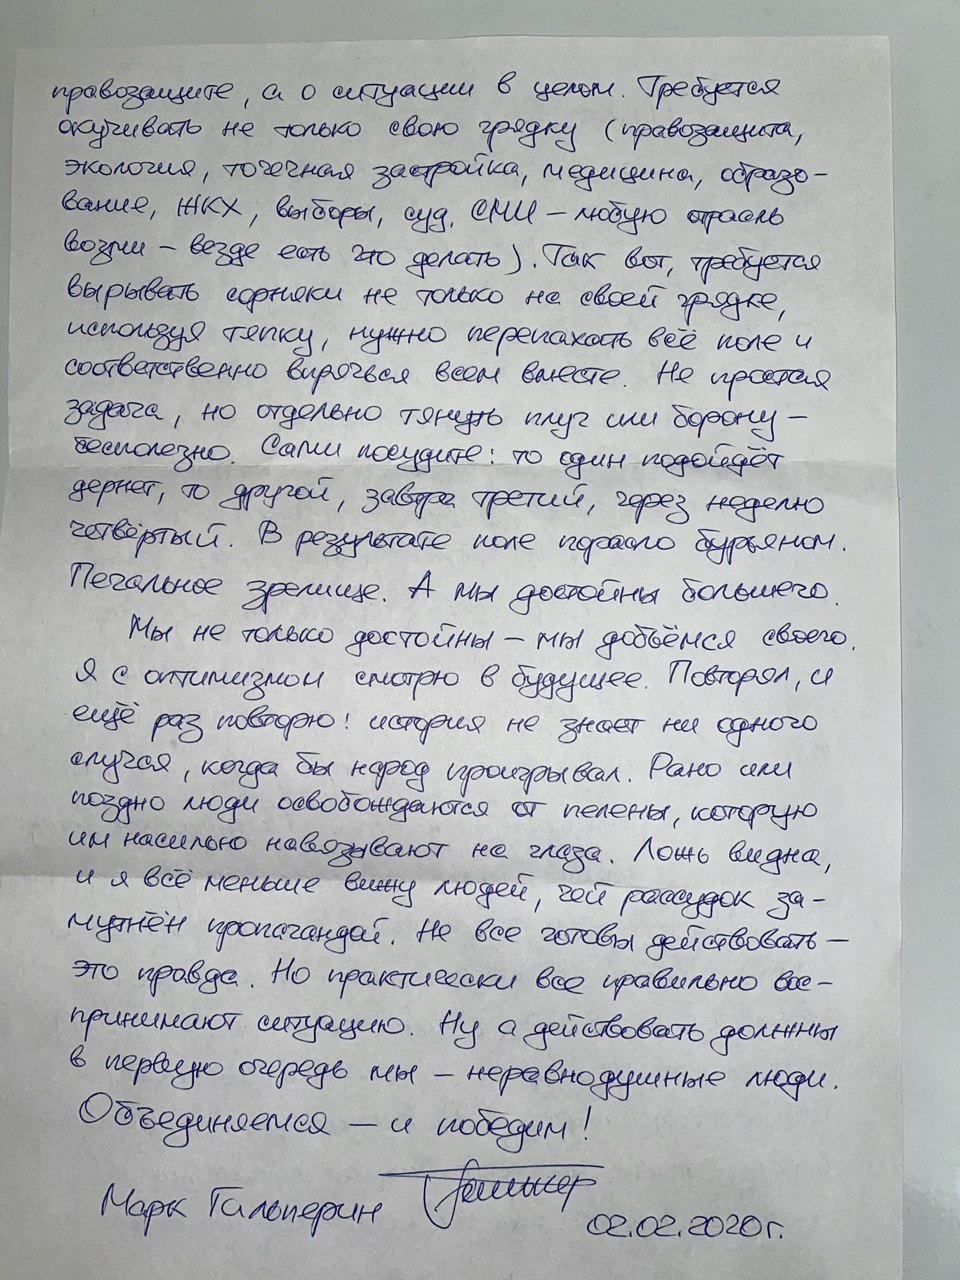 правозащите, а о ситуации в целом. Требуется
окучивать не только свою грядку (правозащита,
экология, точечная застройка, медицина, образо-
вание, ЖКХ, выборы, суд, СМИ – любую отрасль
возьми – везде есть что делать). Так вот, требуется
вырывать сорняки не только на своей грядке,
используя тяпку, нужно перепахать всё поле и
соответственно впрячься всем вместе. Не простая
задача, но отдельно тянуть плуг или борону –
бесполезно. Сами посудите: то один подойдёт
дернет, то другой, завтра третий, через неделю
четвёртый. В результате поле поросло бурьяном.
Печальное зрелище. А мы достойны большего.
Мы не только достойны – мы добьёмся своего.
Я с оптимизмом смотрю в будущее. Повторял, и
ещё раз повторю: история не знает ни одного
случая, когда бы народ проигрывал. Рано или
поздно люди освобождаются от пелены, которую
им насильно навязывают на глаза. Ложь видна,
и я всё меньше вижу людей, чей рассудок за-
мутнён пропагандой. Не все готовы действовать –
это правда. Но практически все правильно вос-
принимают ситуацию. Ну а действовать должны
в первую очередь мы – неравнодушные люди.
Объединяемся – и победим!
Марк Гальперин
02.02.2020г.